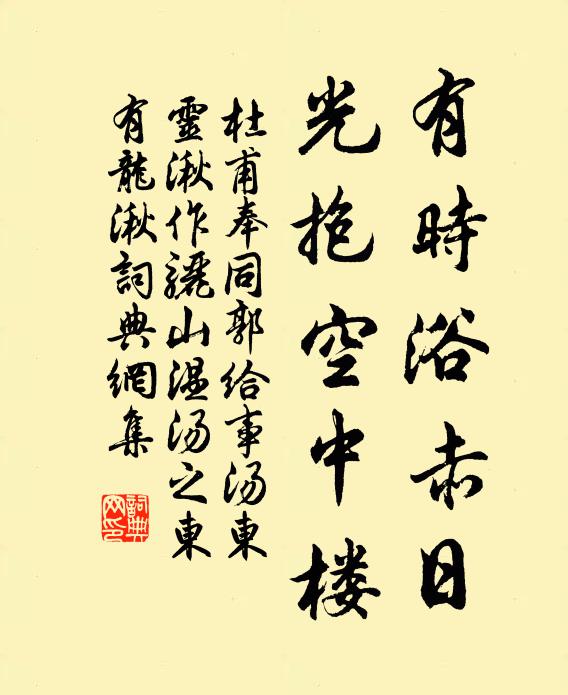 有時浴赤日
光抱空中楼
杜甫奉同郭给事汤東
靈湫作驪山温汤之東
有龍湫詞典網集
詞典
网印